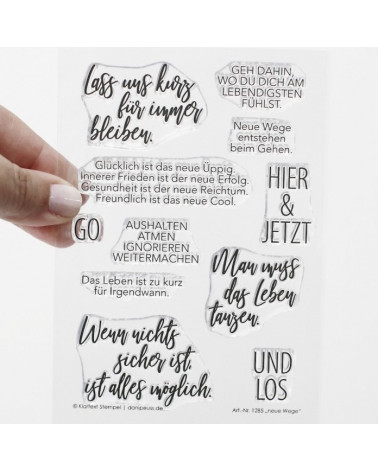 Lass uns kurz
für immer
bleiben.
GEH DAHIN,
WO DU DICH AM
LEBENDIGSTEN
FÜHLST.
Neue Wege
entstehen
beim Gehen.
Glücklich ist das neue Üppig.
Innerer Frieden ist der neue Erfolg.
Gesundheit ist der neue Reichtum.
Freundlich ist das neue Cool.
HIER
&
JETZT
GO
AUSHALTEN
ATMEN
IGNORIEREN
WEITERMACHEN
Das Leben ist zu kurz
für Irgendwann.
Man muss
das Leben
tanzen.
Wenn nichts
sicher ist,
ist alles möglich.
UND
LOS
© Klartext Stempel | danipeuss.de
Art.-Nr. 1285 „neue Wege"